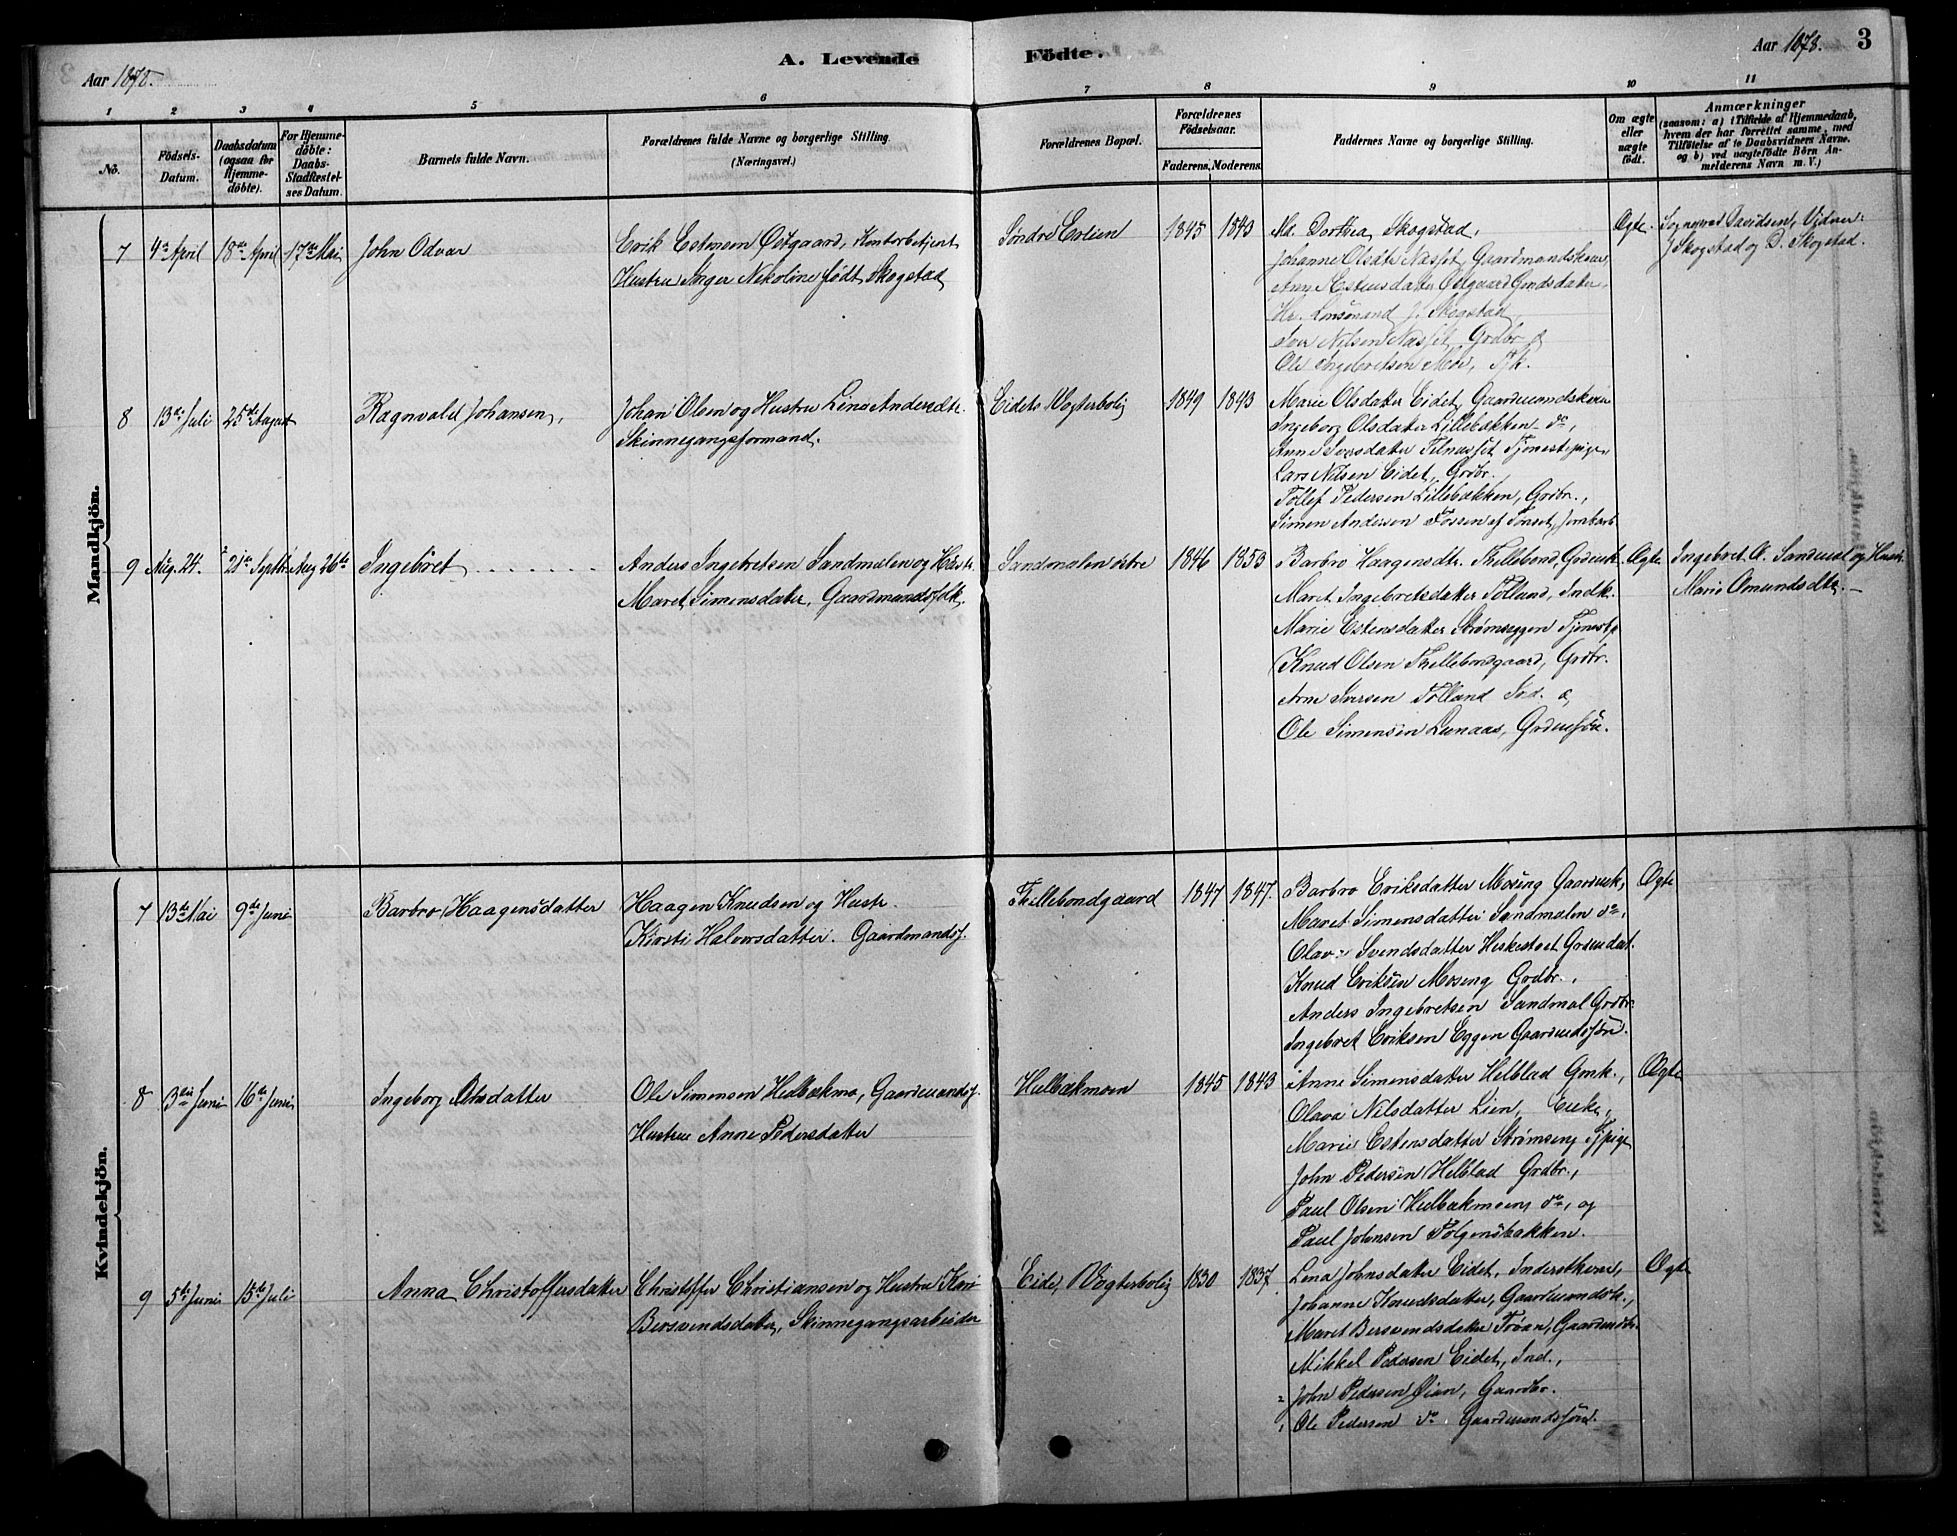 Aar 1878.
A. Levende
Födte.
Aar 1878.
3
1
2
3
4
5
6
7
8
9
10
11
No.
Födsels-
Datum.
Daabsdatum
(ogsaa for
Hjemme-
döbte).
For Hjemme-
döbte:
Daabs-
Stadfæstel-
ses Datum.
Barnets fulde Navn.
Forældrenes fulde Navne og borgerlige Stilling.
(Næringsvei.)
Forældrenes Bopæl.
Forældrenes
Födselsaar.
Faderens.
Moderens.
Faddernes Navne og borgerlige Stilling.
Om ægte
eller
uægte
födt.
Anmærkninger
(saasom: a) i Tilfælde af Hjemmedaab,
hvem der har forrettet samme, med
Tilföielse af to Daabsvidners Navne.
og b) ved uægtefödte Börn An-
melderens Navn m. V.)
Mandkjön.
7
4de April
18de April
17de Mai
John Odvar
Erik Estmem Østgaard, Kontorbetjent
Hustru Inger Nekoline født Skogstad
Søndre Erlien
1845
1843
Md. Dorthea Skogstad,
Johanne Olsdtr Næsset, Gaardmandskone,
Anne Estensdatter Østgaard Gmdsdatter,
Hr. Lensmand J. Skogstad,
Iver Nilsen Næsset, Grdbr &
Ole Ingebretsen Moe, Tjk.
Ægte.
Sogneprest Davidsen, Vidner:
J Skogstad og D. Skogstad.
8
13de Juli
25de August
Ragnvald Johansen,
Johan Olsen og Hustru Line Andersdtr.
Skinnegangsformand.
Eidets Vogterbolig
1849
1843
Marie Olsdatter Eidet, Gaardmandskone
Ingeborg Olsdatter Lillebækken do,
Anne Iversdatter Telnesset Tjenestepige,
Lars Nilsen Eidet, Grdbr.
Tollef Pedersen Lillebækken, Grdbr.,
Simen Andersen Fossen af Tønset,
9
Aug. 24.
21de Septbr
Aug 26de
Ingebret
Anders Ingebretsen Sandmælen og Hustr.
Maret Simensdatter, Gaardmandsfolk.
Sandmælen østre
1846
1853
Barbro Haagensdtr. Thellebond, Grdmk.
Maret Ingebretsdatter Tolland, Indk.
Marie Estensdatter Strømseggen Tjenestp
Knud Olsen Thellebondgaard, Grdbr.
Arne Iversen Tolland Ind. &
Ole Simensen Lunaas, Grdmssøn.
Ægte.
Ingebret A. Sandmæl og Hustr.
Marie Amundsdtr.
Kvindekjön.
7
13de Mai
9de Juni
Barbro Haagensdatter
Haagen Knudsen og Hustr.
Kirsti Halvorsdatter. Gaardmandsf.
Thellebondgaard
1847
1847.
Barbro Eriksdatter Mosing Gaardmk,
Maret Simensdatter Sandmælen do,
Olava Svendsdatter Heskestøet Grdmdat.
Knud Eriksen Mosing Grdbr.,
Anders Ingebretsen Sandmæl Grdbr.
Ingebret Eriksen Eggen Gaardmdssøn.
Ægte
8
3die Juni
16de Juni
Ingeborg Olsdatter
Ole Simensen Hulbækmo, Gaardmandsf.
Hustru Anne Pedersdatter
Hulbækmoen
1845
1843
Anne Simensdatter Helblad Gmk.,
Olava Nilsdatter Lien, Enke,
Marie Estensdatter Strømseng Tjpige
John Pedersen Helblad Grdbr.,
Paul Olsen Hulbækmoens do, og
Paul Johnsen Tølgensbakken.
Ægte
9
5te Juni
15de Juli
Anna Christoffersdatter
Christoffer Christiansen og Hustru Kari
Bersvendsdatter, Skinnegangsarbeider
Eide, Vogterbolig
1830
1837.
Lena Johnsdatter Eidet, Inderstkone,
Johanne Knudsdatter, Gaardmandsk.,
Maret Bersvendsdatter Trøan, Gaardmdsk.
Mikkel Pedersen Eidet, Ind.,
John Pedersen Øian, Gaardbr.
Ole Pedersen do Gaardmandssøn.
Ægte